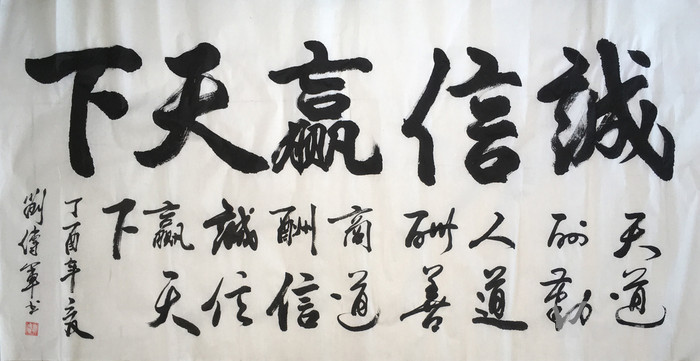 誠信贏天下
天道
酬勤
人道
酬善
商道
酬信
誠信
贏天
下
丁酉年
劉傳軍书